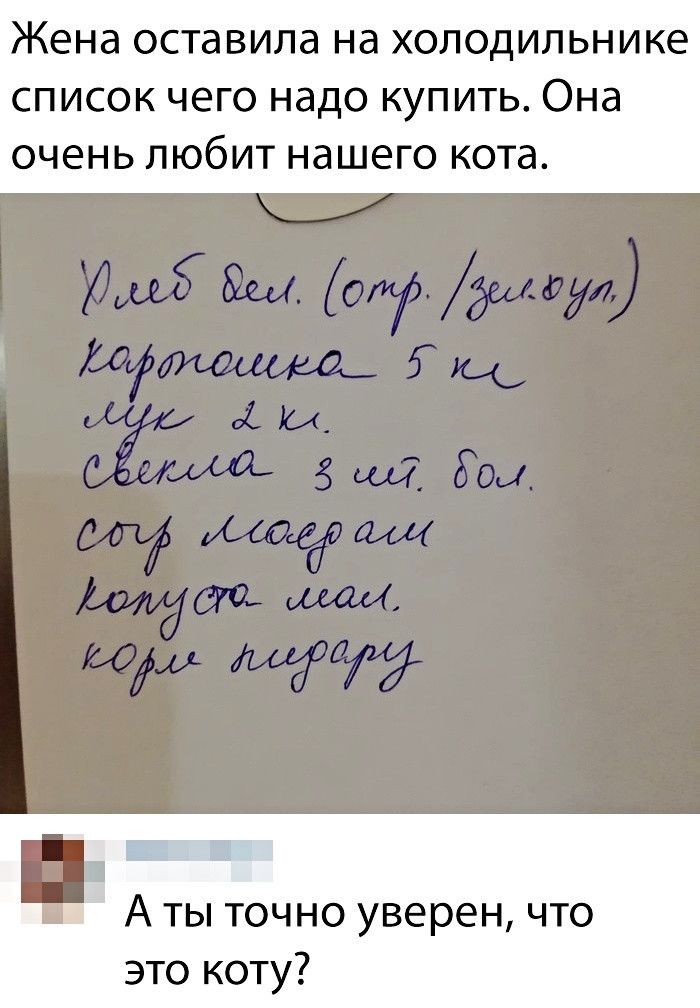 Жена оставила на холодильнике
список чего надо купить. Она
очень любит нашего кота.
Хлеб бел. (отр. /зел. бул.)
Картошка 5 кг
лук 2 кг.
свекла 3 шт. бол.
сыр Маасдам
Капуста мал.
корм пидару
А ты точно уверен, что
это коту?